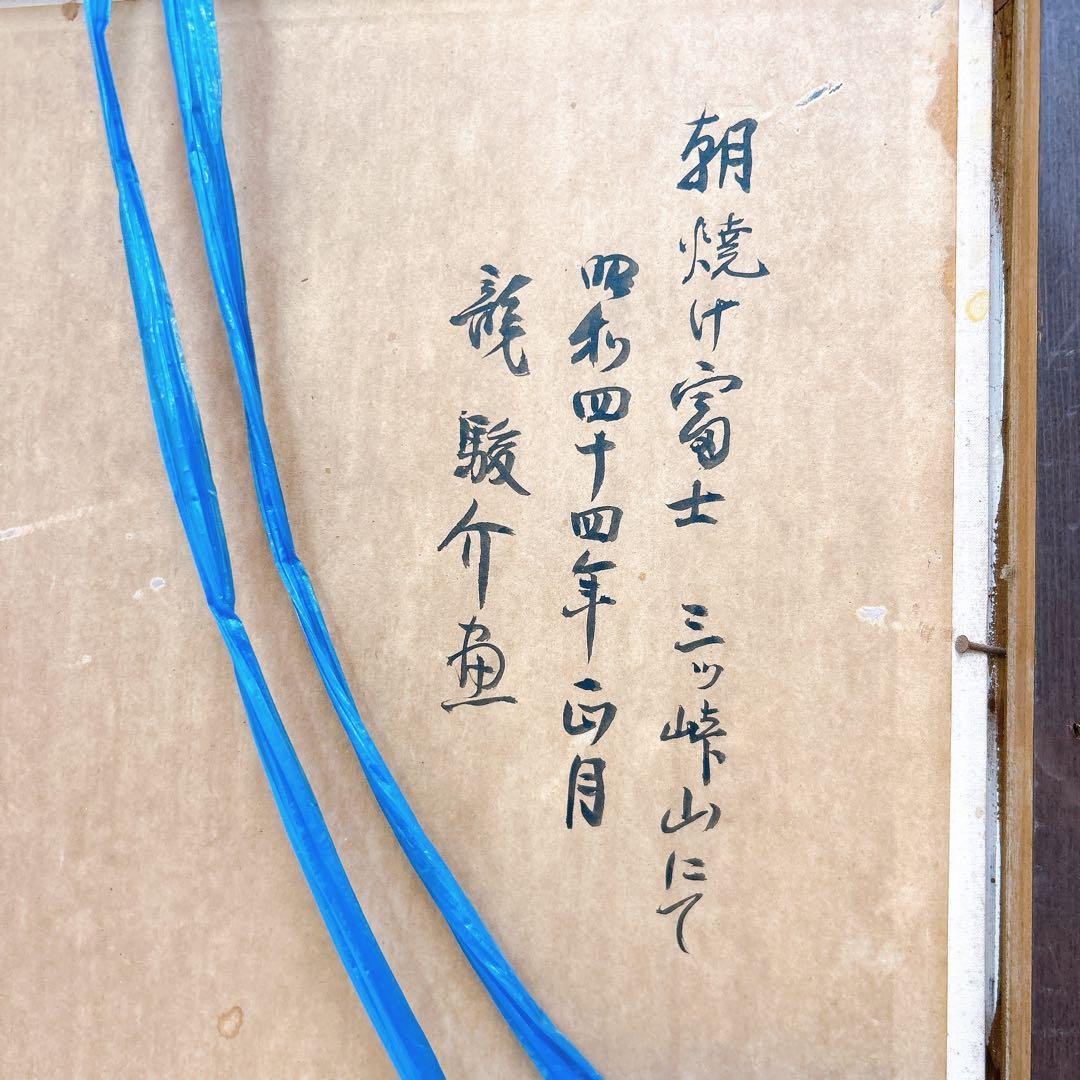 朝焼け富士 三ッ峠山にて
昭和四十四年正月
龍 駿介画